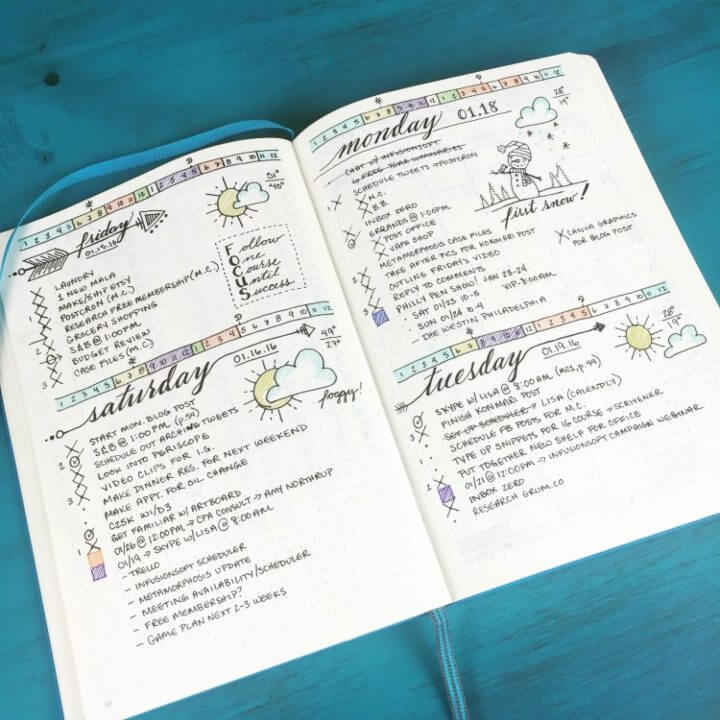 1 2 3 4 5 6 7 8 9 10 11 12 1 2 3 4 5 6 7 8 9 10 11 12
friday
01.15.16
51°
40°
Follow
One
Course
Until
Success
LAUNDRY
1 NEW MALA
MAKE/SHIP ETSY
POSTCRON (M.C.)
RESEARCH FREE MEMBERSHIP (M.C.)
GROCERY SHOPPING
S&B @ 1:00PM
BUDGET REVIEW
CASE FILES (M.C.)
1 2 3 4 5 6 7 8 9 10 11 12 1 2 3 4 5 6 7 8 9 10 11 12
saturday
01.16.16
49°
27°
foggy!
START MON. BLOG POST
S&B @ 1:00PM (p.54)
SCHEDULE OUT ARCHING TWEETS
LOOK INTO PERISCOPE
VIDEO CLIPS FOR I.G.
MAKE DINNER RES. FOR NEXT WEEKEND
MAKE APPT. FOR OIL CHANGE
C25K W1/D3
GET FAMILIAR W/ARTBOARD
01/26 @ 12:00PM → CPA CONSULT → AMY NORTHRUP
01/19 → SKYPE W/LISA @ 8:00AM
- TRELLO
- INFUSIONSOFT SCHEDULER
- METAMORPHOSIS UPDATE
- MEETING AVAILABILITY/SCHEDULER
- FREE MEMBERSHIP?
- GAME PLAN NEXT 2-3 WEEKS
1 2 3 4 5 6 7 8 9 10 11 12 1 2 3 4 5 6 7 8 9 10 11 12
monday
01.18
28°
19°
CHAT W/ INFUSIONSOFT
FREE YEAR LUMINARIES
SCHEDULE TWEETS → POSTCRON
M.C.
B.B.
INBOX ZERO
ERRANDS @ 1:00PM
POST OFFICE
VAPE SHOP
METAMORPHOSIS CASE FILES
TAKE AFTER PICS FOR KONMARI POST
OUTLINE FRIDAY'S VIDEO
REPLY TO COMMENTS
PHILLY PEN SHOW! JAN 23-24
- SAT 01/23 10-5 VIP-8:00AM
- SUN 01/24 10-4
- THE WESTIN PHILADELPHIA
first snow!
CANVA GRAPHICS
FOR BLOG POST
1 2 3 4 5 6 7 8 9 10 11 12 1 2 3 4 5 6 7 8 9 10 11 12
tuesday
01.19.16
28°
19°
SKYPE W/LISA @ 8:00AM (mc1, p.94)
FINISH KONMARI POST
SET UP SCHEDULER → LISA (CALENDLY)
SCHEDULE FB POSTS FOR M.C.
TYPE UP SNIPPETS FOR IG COURSE → SCRIVENER
PUT TOGETHER NEW SHELF FOR OFFICE
01/21 @ 12:00PM → INFUSIONSOFT CAMPAIGN WEBINAR
INBOX ZERO
RESEARCH GRUM.CO